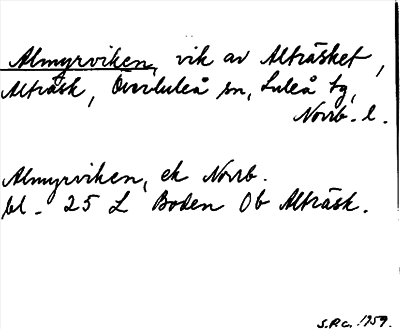 Almyrviken, vik av Altträsket,
Altträsk, Överluleå sn, Luleå tg,
Norrb. l.
Almyrviken, ek Norrb.
bl. 25 L Boden Ob Altträsk.
S.P.C. 1959.